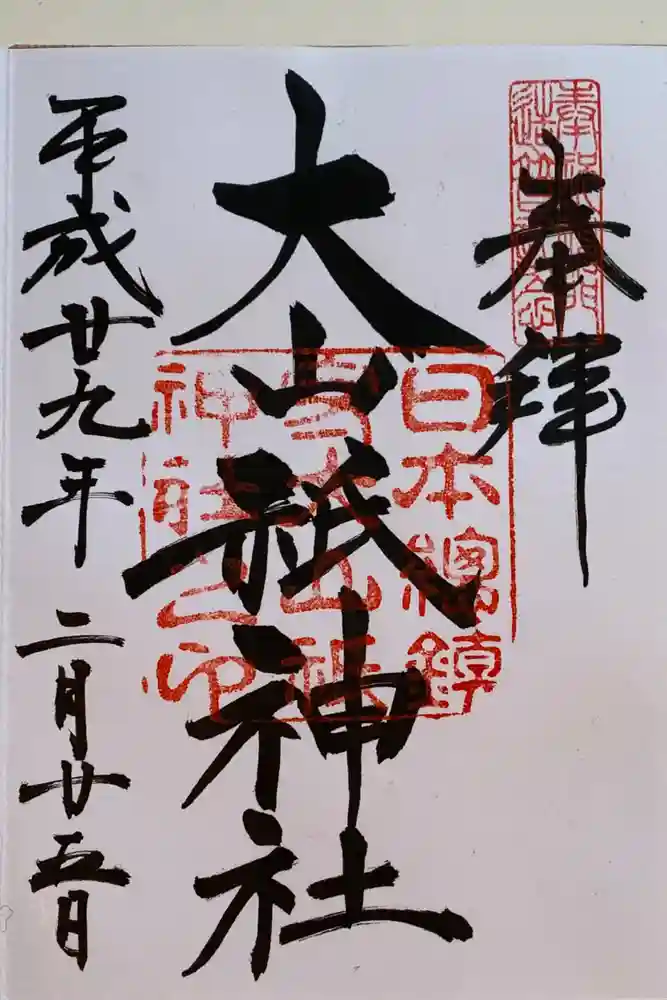 奉拝
大山祇神社
日本總鎮
大山祇
神社之印
平成廿九年二月廿五日